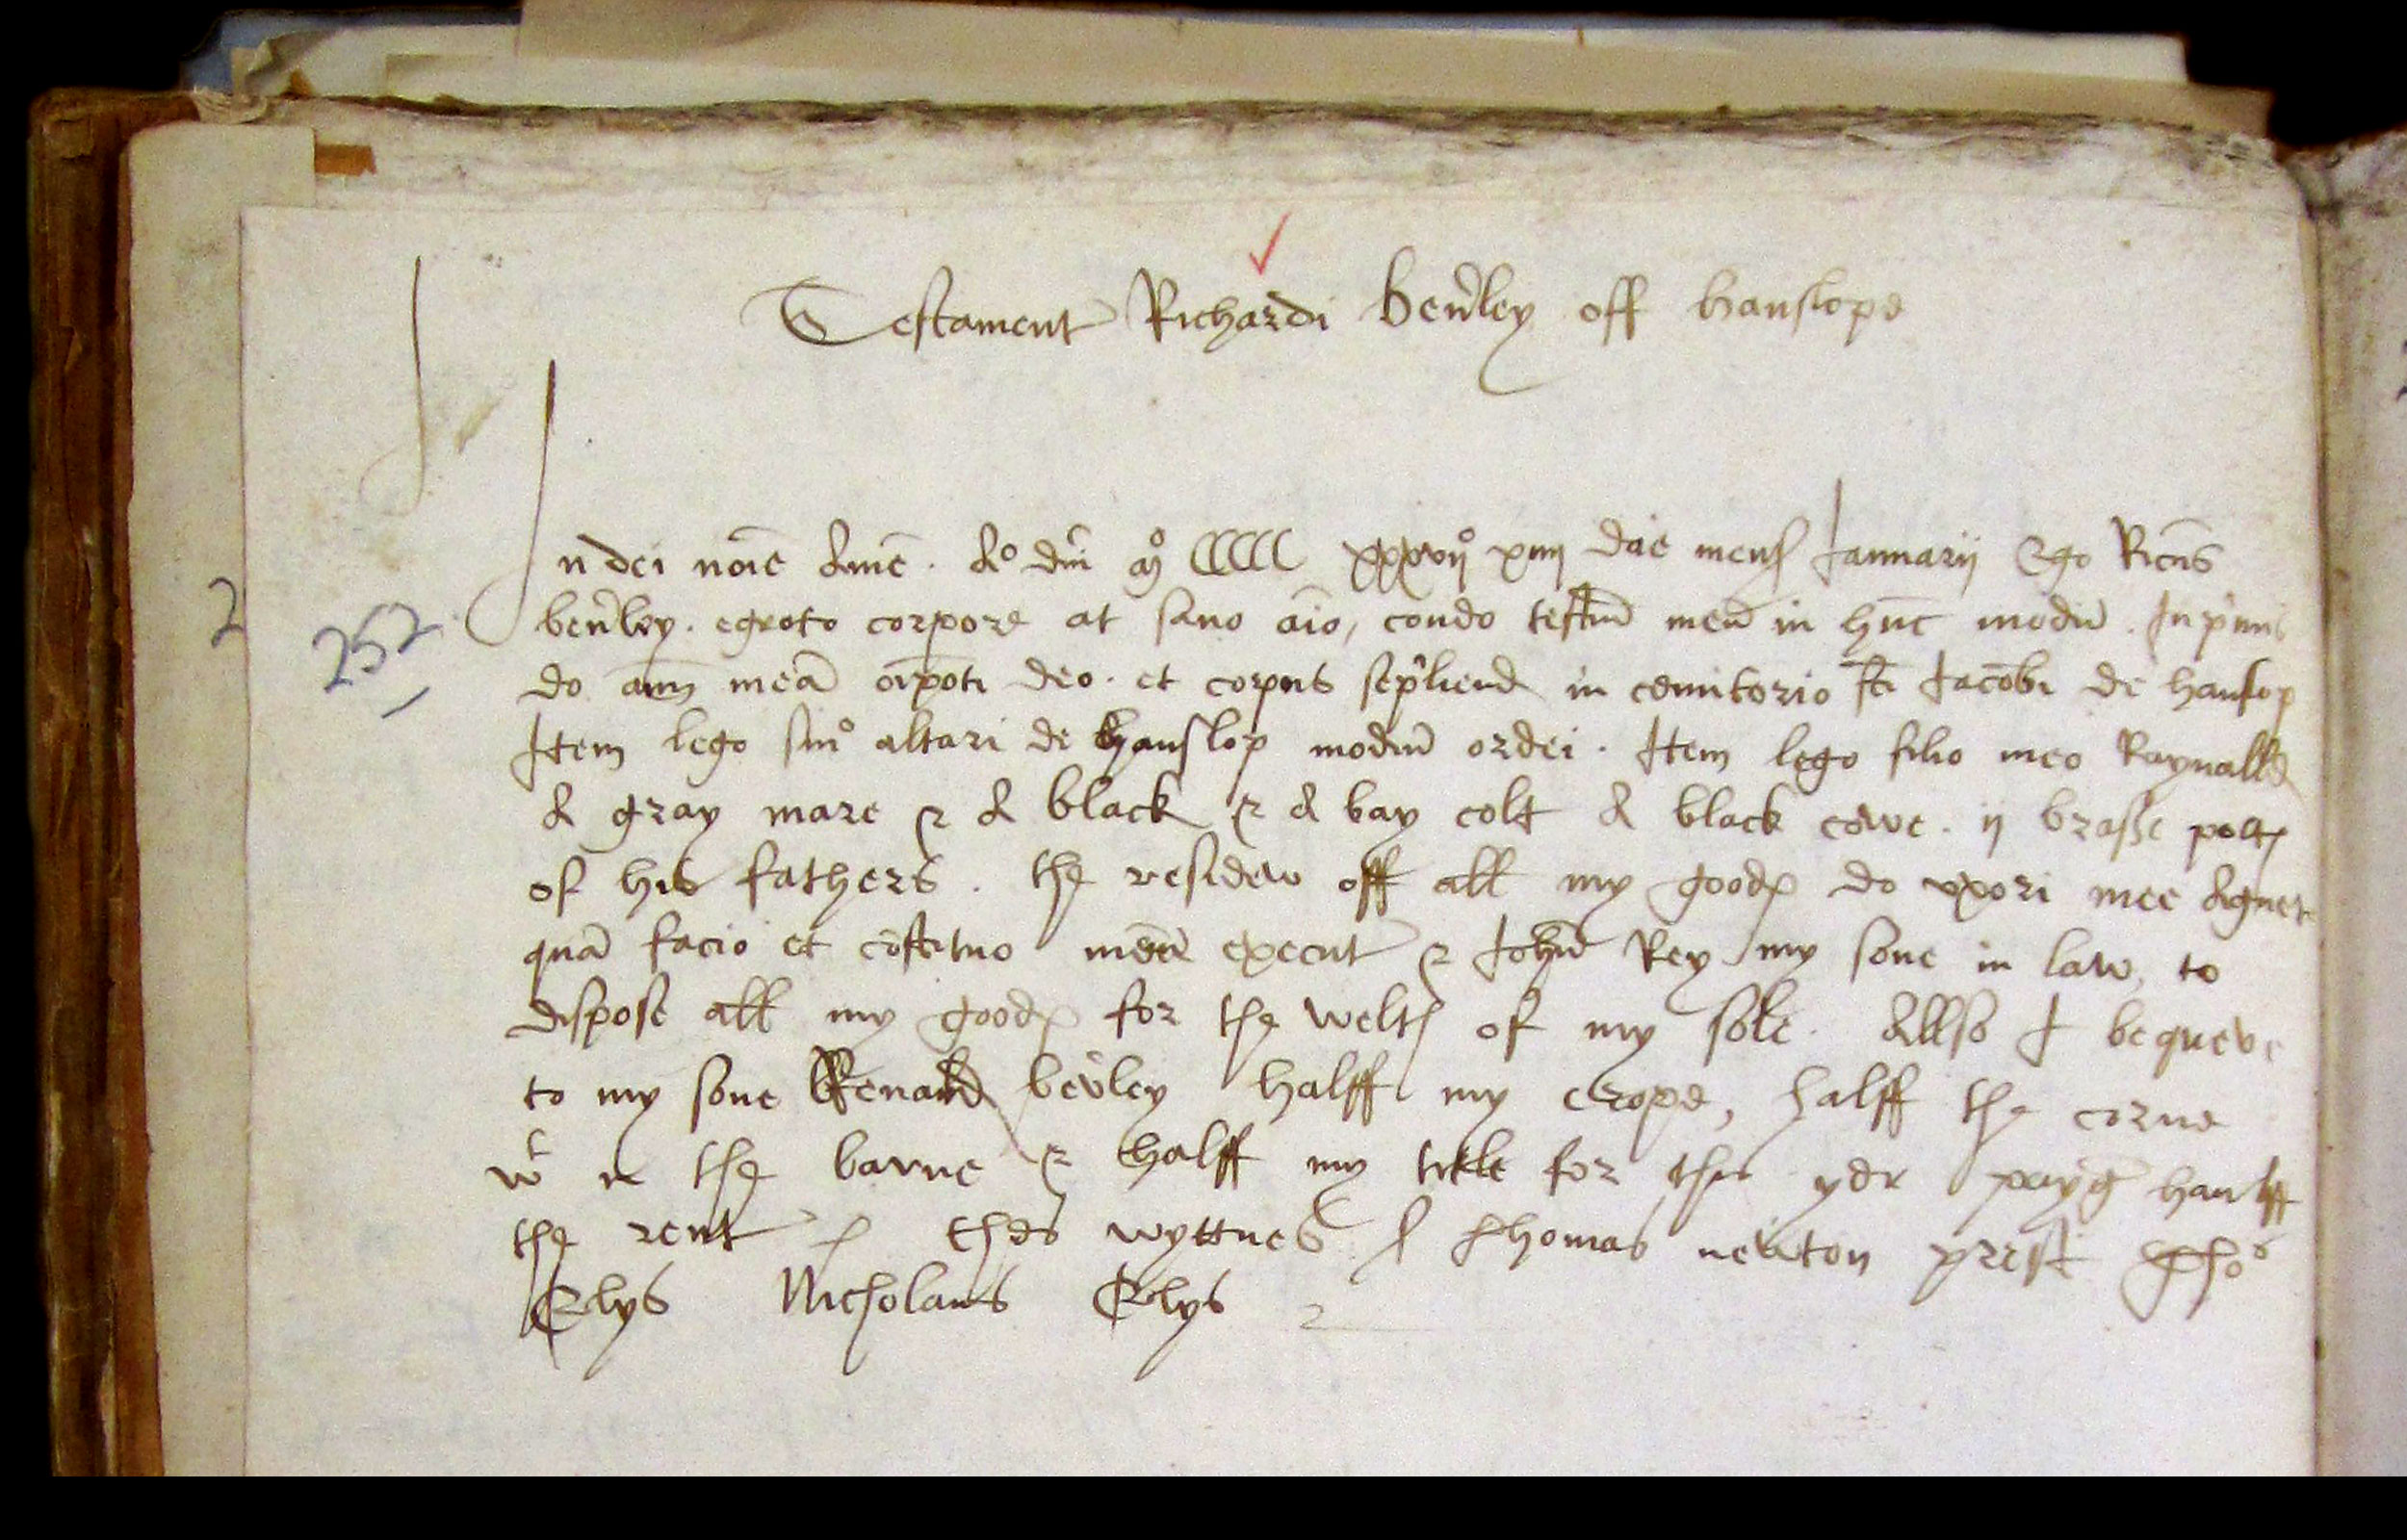 Testament Richardi Beverley off hanslope
In dei noie Ame. Ao dni mo CCCCC xxxvijo xiiij die mens Januarij Ego Ricus
beverley. egroto corpore at sano aio, condo testm meu in hunc modu. In primis
do aim meā oipoti deo. et corpus sepeliend in cemitorio sci Jacobi de hanslop
Item lego smo altari de hanslop modiu ordei. Item lego filio meo Raynalld
A gray mare & A black & A bay colt A black cowe. ij brasse potts
of his fathers. the residew off all my goods do vxori mee Agnet
quā facio et cōstituo meā execut & John Rey my sone in law, to
dispose all my goods for the welth of my sole. Allso I bequeve
to my sone Renald beverley halff my crope, halff the corne
wt in the barne & halff my title for this yer payīg haulff
the rent thes wyttnes Thomas newton prest
Elys Nicholaus Elys
252
2